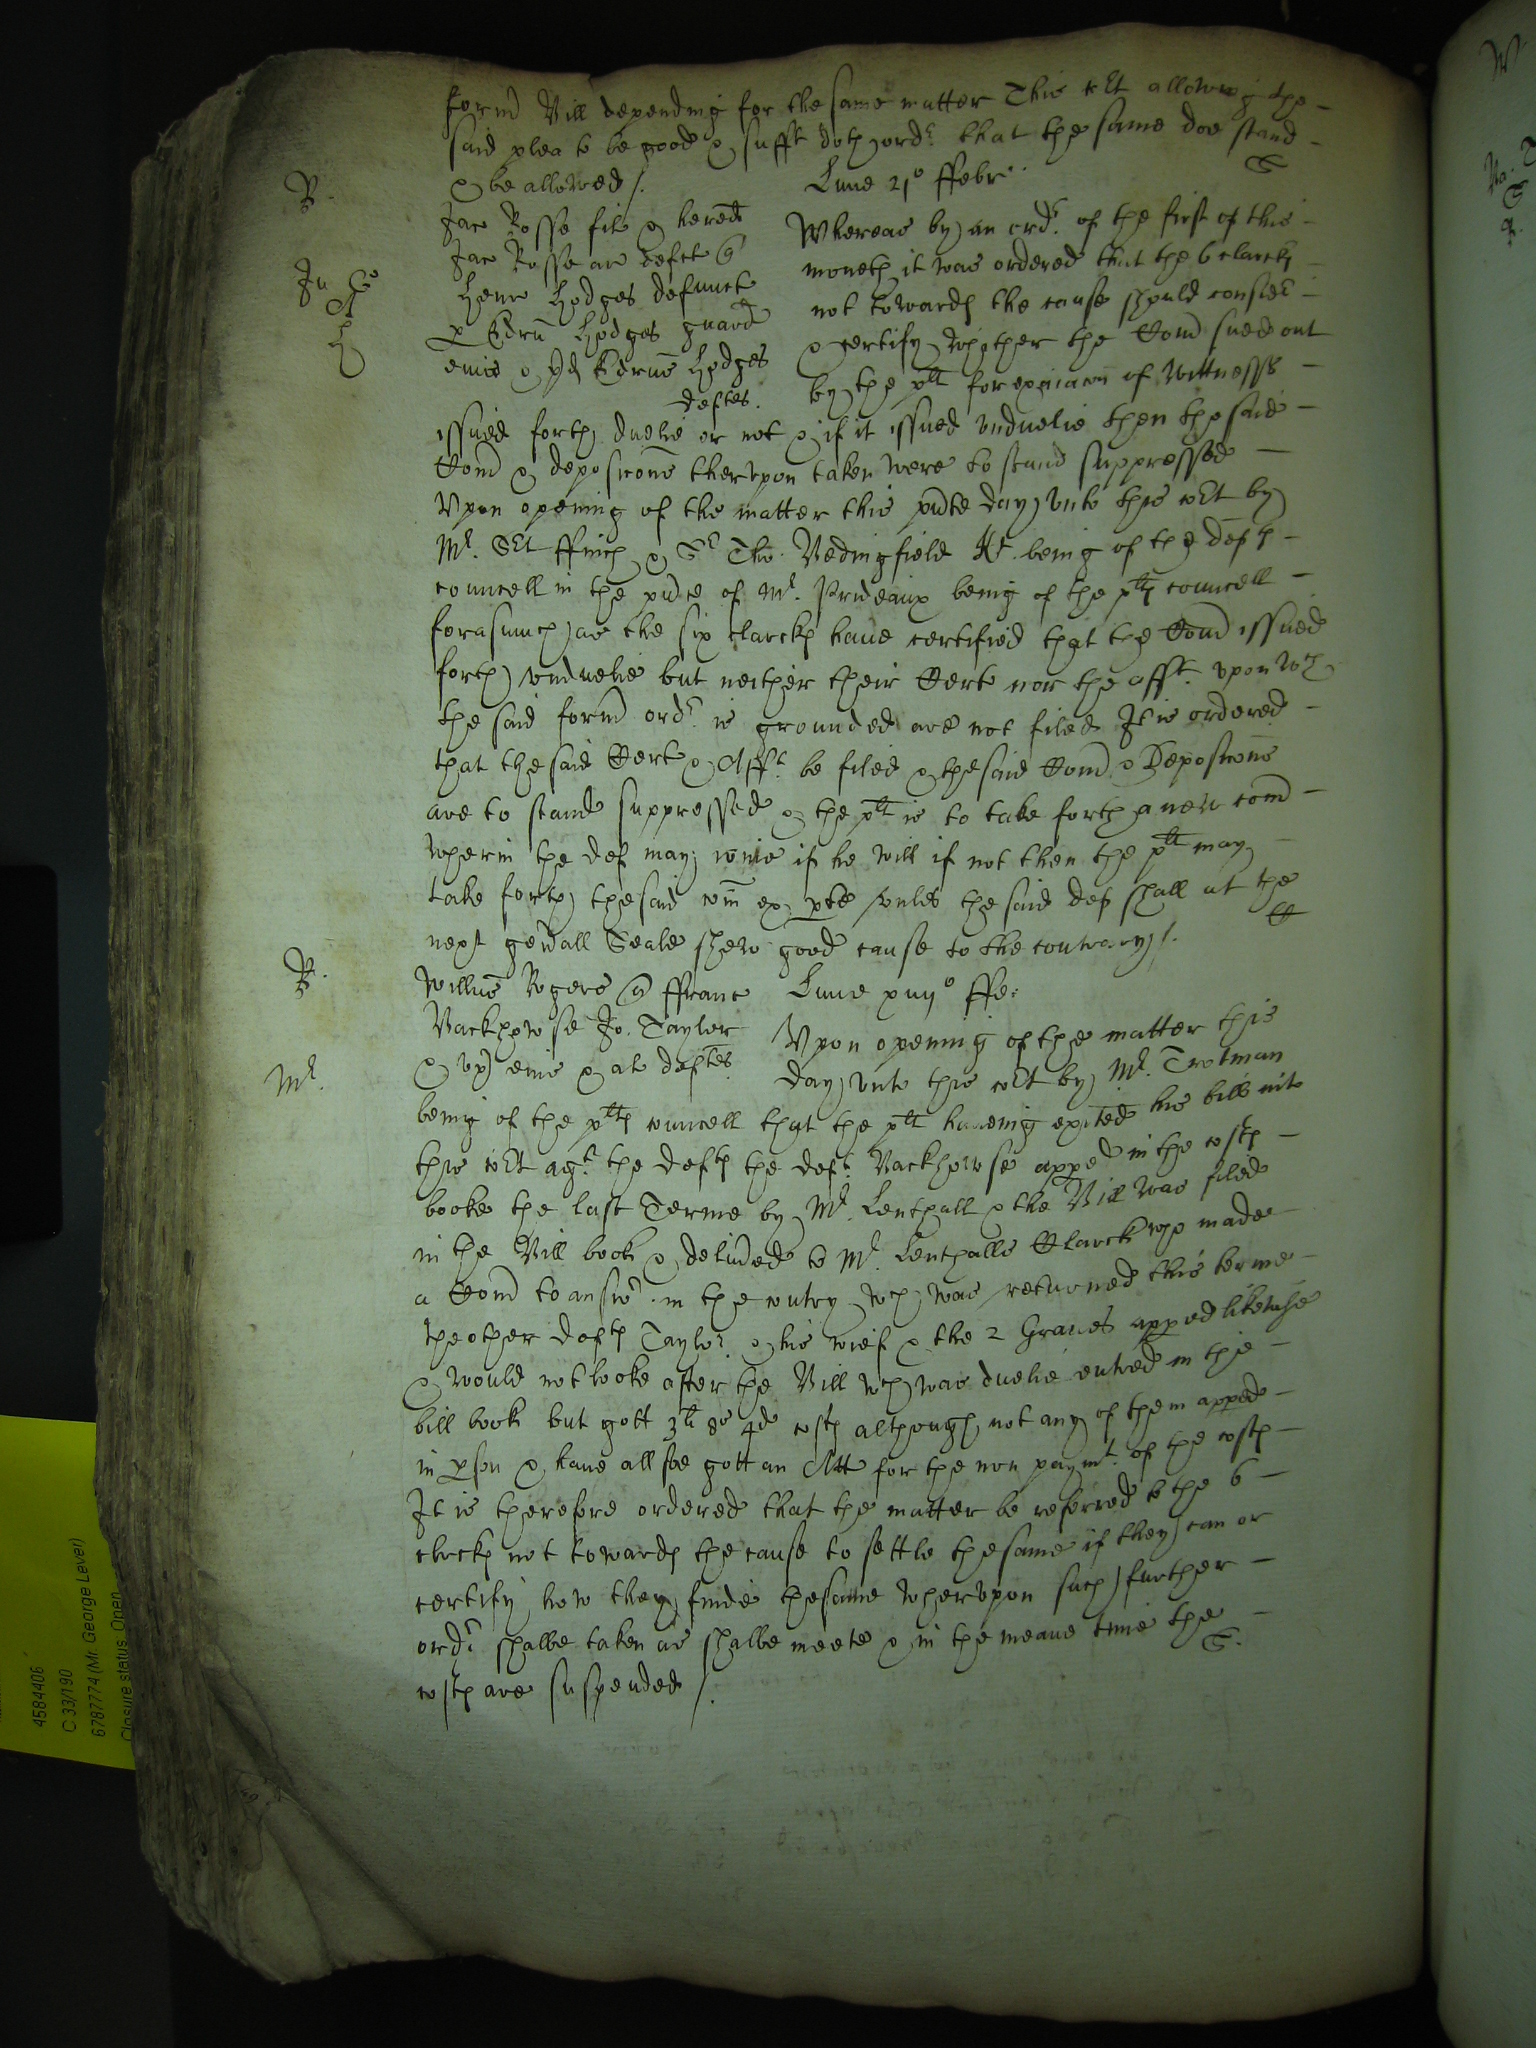 formd Bill depending for the same matter This cōt allowing the
said plea to be good & sufft doth ordr that the same doe stand
& be allowed /.
S
Lune 21o ffebr.
R.
Jac Rosse fil & hered
Jac Rosse ar defct
Henr Hodges defunct
p Edrū Hodges guard
euis & Edrus Hodges
deftes.
Whereas by an ordr. of the first of this
moneth it was ordered that the 6 clarck
not towards the cause should consider
& certify whether the Comd sued out
by the plt for exiacon of wittnesses
issued forth duelie or not & if it issued vnduelie then the said
Comd & deposicons thervpon taken were to stand suppressed
Vpon opening of the matter this pnte day vnto this cōt by
Mr. Sct ffinch & Sr Tho. Bedingfield Kt. being of the defts
councell in the pnce of Mr. Prideaux being of the plts councell
forasmuch as the six clarcks haue certified that the Comd issued
forth vnduelie but neither their Cert nor the afft. vpon wch
the said formd ordr. is grounded are not filed It is ordered
that the said Cert & Afft. be filed & the said Comd & Deposicons
are to stand suppressed & the plt is to take forth a new comd
wherin the def may ioine if he will if not then the plt may
take forth the said com ex pte vnles the said def shall at the
next genall Seale shew good cause to the contrary /.
R.
Willus Rogers ffranc
Backhowse Jo. Taylor
& vx eius & al deftes
Lune xviijo ffe:
Mr.
Vpon opening of the matter this
day vnto this cōt by Mr. Trotman
being of the plts councell that the plt haueing exited his bill into
this cōt agt the defts the deft. Backhowse apped in the costs
booke the last Terme by Mr. Lenthall & the Bill was filed
in the Bill book & deliued to Mr. Lenthalls Clarck who made
a Comd to answr. in the cuntry wch was returned this terme
the other defts Taylor. & his wief & the 2 Graues apped likewise
& would not looke after the Bill wch was duelie entred in the
bill book but gott 3li 8s 4d costs although not any of them apped
in pson & haue allsoe gott an Att for the non paymt. of the costs
It is therefore ordered that the matter be referred to the 6
clercks not towards the cause to settle the same if they can or
certify how they finde the same whervpon such further
ordr shalbe taken as shalbe meete & in the meane time the
costs are suspended /.
S.
4584406
C 33/190
6787774 (Mr George Lever)
Closure status: Open